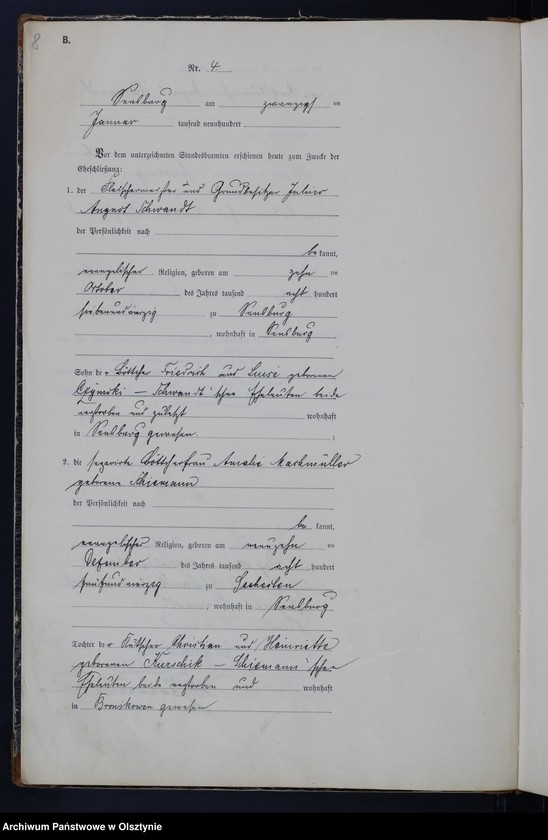 8
B.
Nr. 4
Sensburg am zwanzigsten
Januar tausend neunhundert
Vor dem unterzeichneten Standesbeamten erschienen heute zum Zwecke der
Eheschließung:
1. der Fleischermeister und Grundbesitzer Julius
August Schwandt
der Persönlichkeit nach
be kannt,
evangelischer Religion, geboren am zehn ten
Oktober des Jahres tausend acht hundert
siebenundvierzig zu Sensburg
, wohnhaft in Sensburg
Sohn der Böttcher Friedrich und Luise geborenen
Schwandt'schen Eheleuten beide
verstorben und zuletzt wohnhaft
in Sensburg gewesen. ;
2. die separirte Böttcherfrau Amalie Machmüller
geborene Schiemann
der Persönlichkeit nach
be kannt,
evangelischer Religion, geboren am neunzehn ten
Dezember des Jahres tausend acht hundert
fünfundvierzig zu
, wohnhaft in Sensburg
Tochter der Kutscher Christian und Heinriette
geborenen Kurschik – Schiemann'schen
Eheleuten beide verstorben und wohnhaft
in Bronikowen gewesen
Archiwum Państwowe w Olsztynie